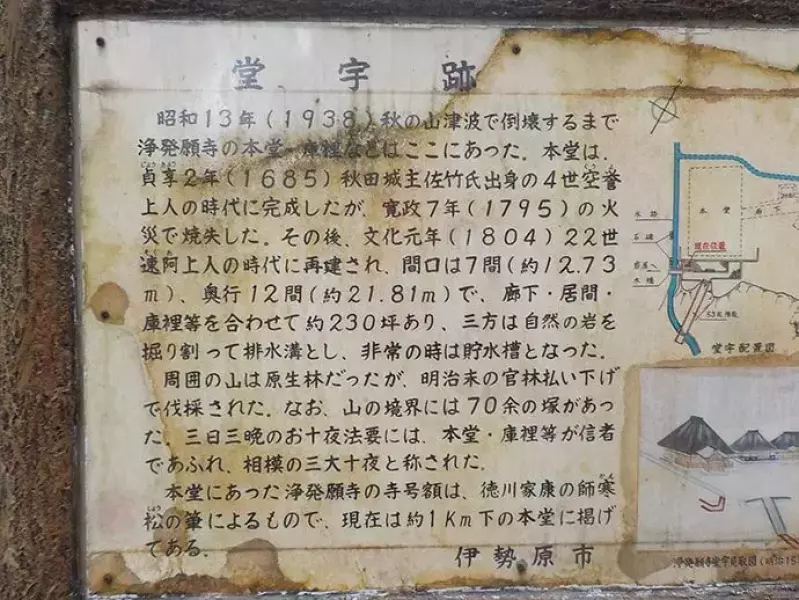 堂宇跡
昭和13年(1938)秋の山津波で倒壊するまで
浄発願寺の本堂・庫裡などはここにあった。本堂は、
貞享2年(1685)秋田城主佐竹氏出身の4世空誉
上人の時代に完成したが、寛政7年(1795)の火
災で焼失した。その後、文化元年(1804)22世
速阿上人の時代に再建され、間口は7間(約12.73
m)、奥行12間(約21.81m)で、廊下・居間・
庫裡等を合わせて約230坪あり、三方は自然の岩を
掘り割って排水溝とし、非常の時は貯水槽となった。
周囲の山は原生林だったが、明治末の官林払い下げ
で伐採された。なお、山の境界には70余の塚があっ
た。三日三晩のお十夜法要には、本堂・庫裡等が信者
であふれ、相模の三大十夜と称された。
本堂にあった浄発願寺の寺号額は、徳川家康の師寒
松の筆によるもので、現在は約1Km下の本堂に掲げ
てある。
伊勢原市
本堂
廊下
現在位置
石碑
木橋
堂宇配置図